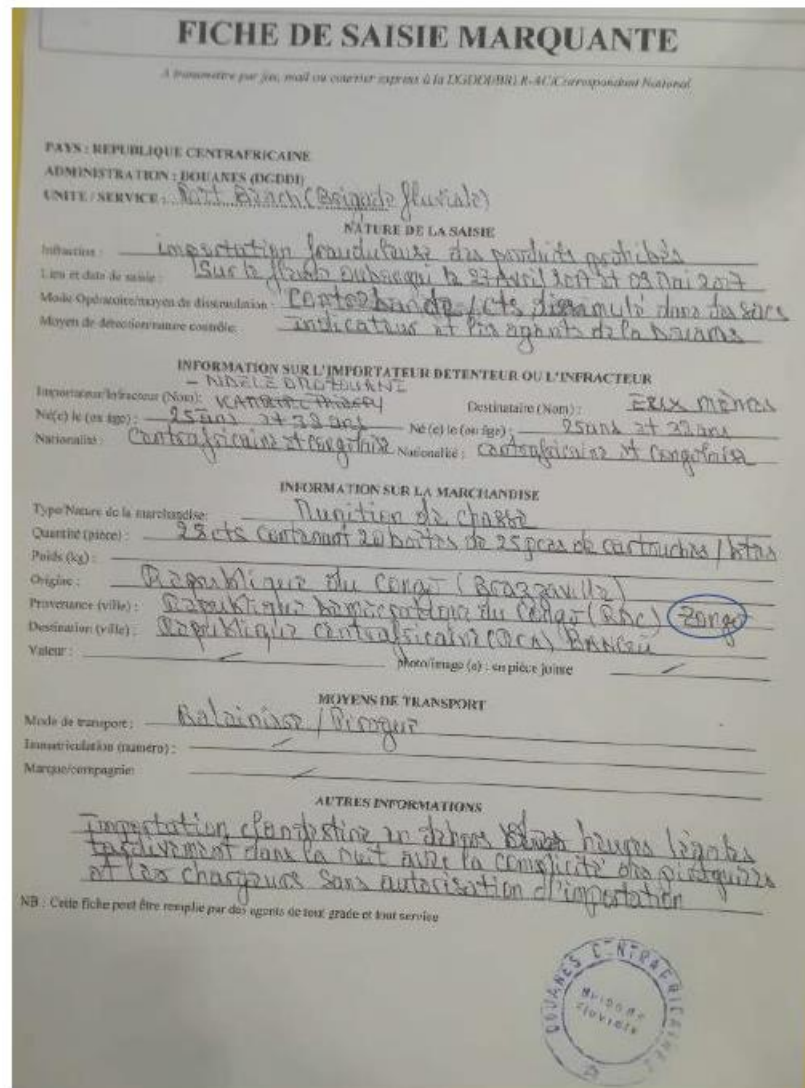 FICHE DE SAISIE MARQUANTE
A transmettre par fax, mail ou courrier express à la DGDDI/BRLR-AC/Correspondant National
PAYS : REPUBLIQUE CENTRAFRICAINE
ADMINISTRATION : DOUANES (DGDDI)
UNITE / SERVICE : Port Beach (Brigade fluviale)
NATURE DE LA SAISIE
Infraction : importation frauduleuse des produits prohibés
Lieu et date de saisie : Sur le fleuve oubangui le 27 Avril 2017 et 09 Mai 2017
Mode Opératoire/moyen de dissimulation : Contrebande / cts dissimulé dans des sacs
Moyen de détection/nature contrôle: indicateur et les agents de la
INFORMATION SUR L'IMPORTATEUR DETENTEUR OU L'INFRACTEUR
Importateur/Infracteur (Nom): Destinataire (Nom) :
Né(e) le (ou âge) : 25 ans et Né (e) le (ou âge) : 25 ans et
Nationalité : Centrafricaine et Congolaise Nationalité : Centrafricaine et Congolaise
INFORMATION SUR LA MARCHANDISE
Type/Nature de la marchandise: Munition de chasse
Quantité (pièce) : 28 cts contenant 20 boîtes de 25 pces de cartouches /
Poids (kg) :
Origine : République du Congo (Brazzaville)
Provenance (ville) : République Démocratique du Congo (RDC) Zongo
Destination (ville) : République Centrafricaine (RCA) BANGUI
Valeur : photo/image (s) : en pièce jointe
MOYENS DE TRANSPORT
Mode de transport : Baleinière / Pirogue
Immatriculation (numéro) :
Marque/compagnie:
AUTRES INFORMATIONS
Importation clandestine en dehors heures légales
tardivement dans la nuit avec la complicité des piroguiers
et les chargeurs sans autorisation d'importation
NB : Cette fiche peut être remplie par des agents de tout grade et tout service
DOUANES CENTRAFRICAINES
Brigade
Fluviale